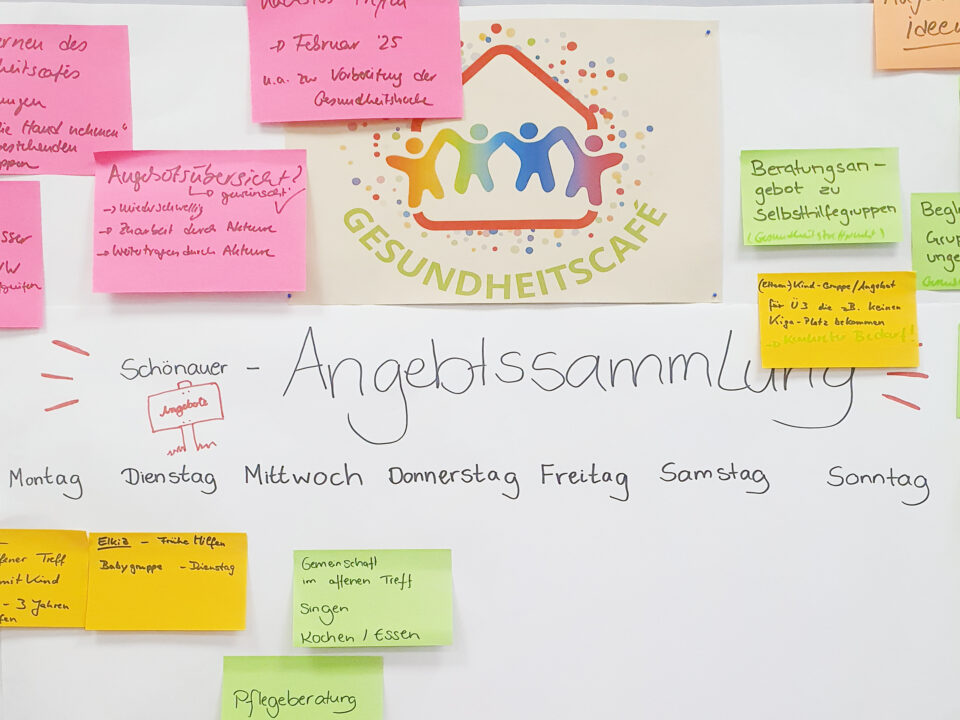 Nächstes Treffen
-> Februar '25
u.a. zur Vorbereitung der
Gesundheitshocke
ideen
ernen des
heitscafés
ungen
die Hand nehmen"
bestehenden
ppen
Angebotsübersicht?
gewünscht ✓
-> Niederschwellig
-> Zuarbeit durch Akteure
-> Weitertragen durch Akteure
GESUNDHEITSCAFÉ
Beratungsan-
gebot zu
Selbsthilfegruppen
(Gesundheitstreffpunkt)
Begl
Grup
unge
(Eltern-)Kind-Gruppe/Angebot
für Ü3 die z.B. keinen
Kiga-Platz bekommen
-> Konkreter Bedarf!
Schönauer - Angebtssammlung
Angebote
Montag Dienstag Mittwoch Donnerstag Freitag Samstag Sonntag
fener Treff
mit Kind
- 3 Jahren
Elkiz - Frühe Hilfen
Babygruppe - Dienstag
Gemenschaft
im offenen Treff
Singen
Kochen / Essen
Pflegeberatung